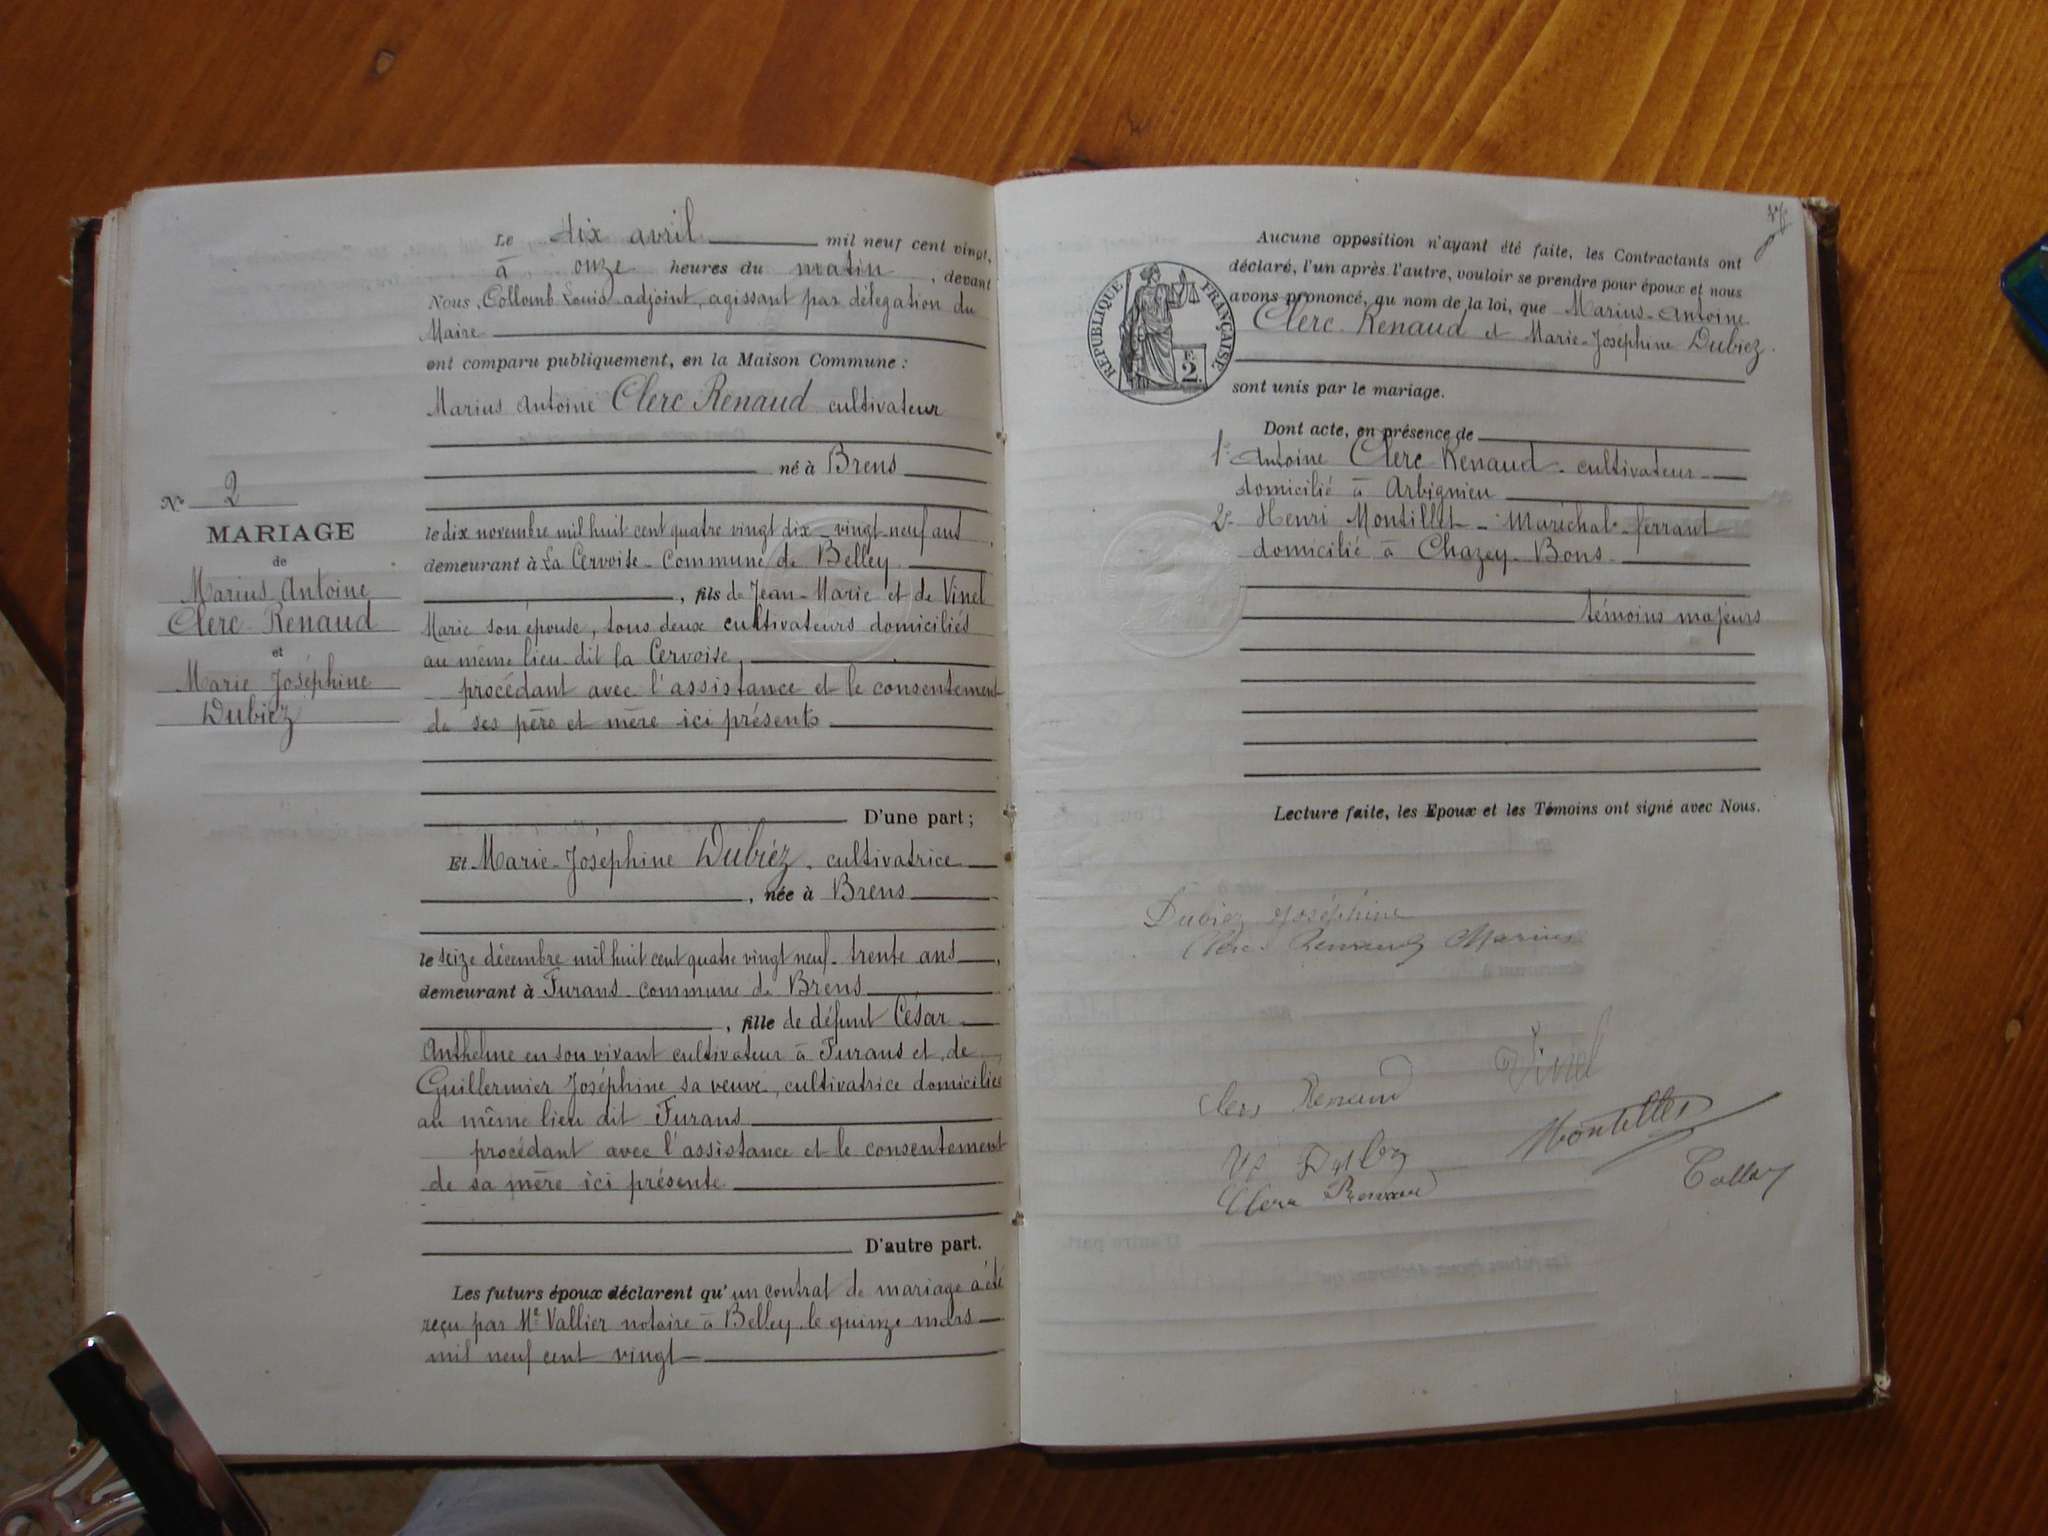 Le dix avril mil neuf cent vingt,
à onze heures du matin, devant
Nous, Collomb Louis adjoint, agissant par délégation du
Maire
ont comparu publiquement, en la Maison Commune :
Marius Antoine Clerc Renaud cultivateur
né à Brens
le dix novembre mil huit cent quatre vingt dix - vingt-neuf ans,
demeurant à La Cervoise - Commune de Belley
, fils de Jean-Marie et de Vinel
Marie son épouse, tous deux cultivateurs domiciliés
au même lieu dit la Cervoise,
procédant avec l'assistance et le consentement
de ses père et mère ici présents
D'une part ;
Et Marie-Joséphine Dubiez, cultivatrice
, née à Brens
le seize décembre mil huit cent quatre vingt neuf - trente ans,
demeurant à Furans - commune de Brens
, fille de défunt César
Anthelme en son vivant cultivateur à Furans et de
Guillermier Joséphine sa veuve, cultivatrice domiciliée
au même lieu dit Furans
procédant avec l'assistance et le consentement
de sa mère ici présente
D'autre part.
Les futurs époux déclarent qu'un contrat de mariage a été
reçu par Me Vallier notaire à Belley le quinze mars
mil neuf cent vingt
No 2
MARIAGE
de
Marius Antoine
Clerc-Renaud
et
Marie Joséphine
Dubiez
Aucune opposition n'ayant été faite, les Contractants ont
déclaré, l'un après l'autre, vouloir se prendre pour époux et nous
avons prononcé, au nom de la loi, que Marius-Antoine
Clerc-Renaud et Marie-Joséphine Dubiez.
sont unis par le mariage.
RÉPUBLIQUE FRANÇAISE
2
Dont acte, en présence de
1° Antoine Clerc-Renaud - cultivateur
domicilié à Arbignieu
2° Henri Montillet - Maréchal-ferrant
domicilié à Chazey-Bons
témoins majeurs
Lecture faite, les Epoux et les Témoins ont signé avec Nous.
Dubiez Joséphine
Clerc-Renaud Marius
Clerc Renaud Vinel
Montillet
Clerc Renaud